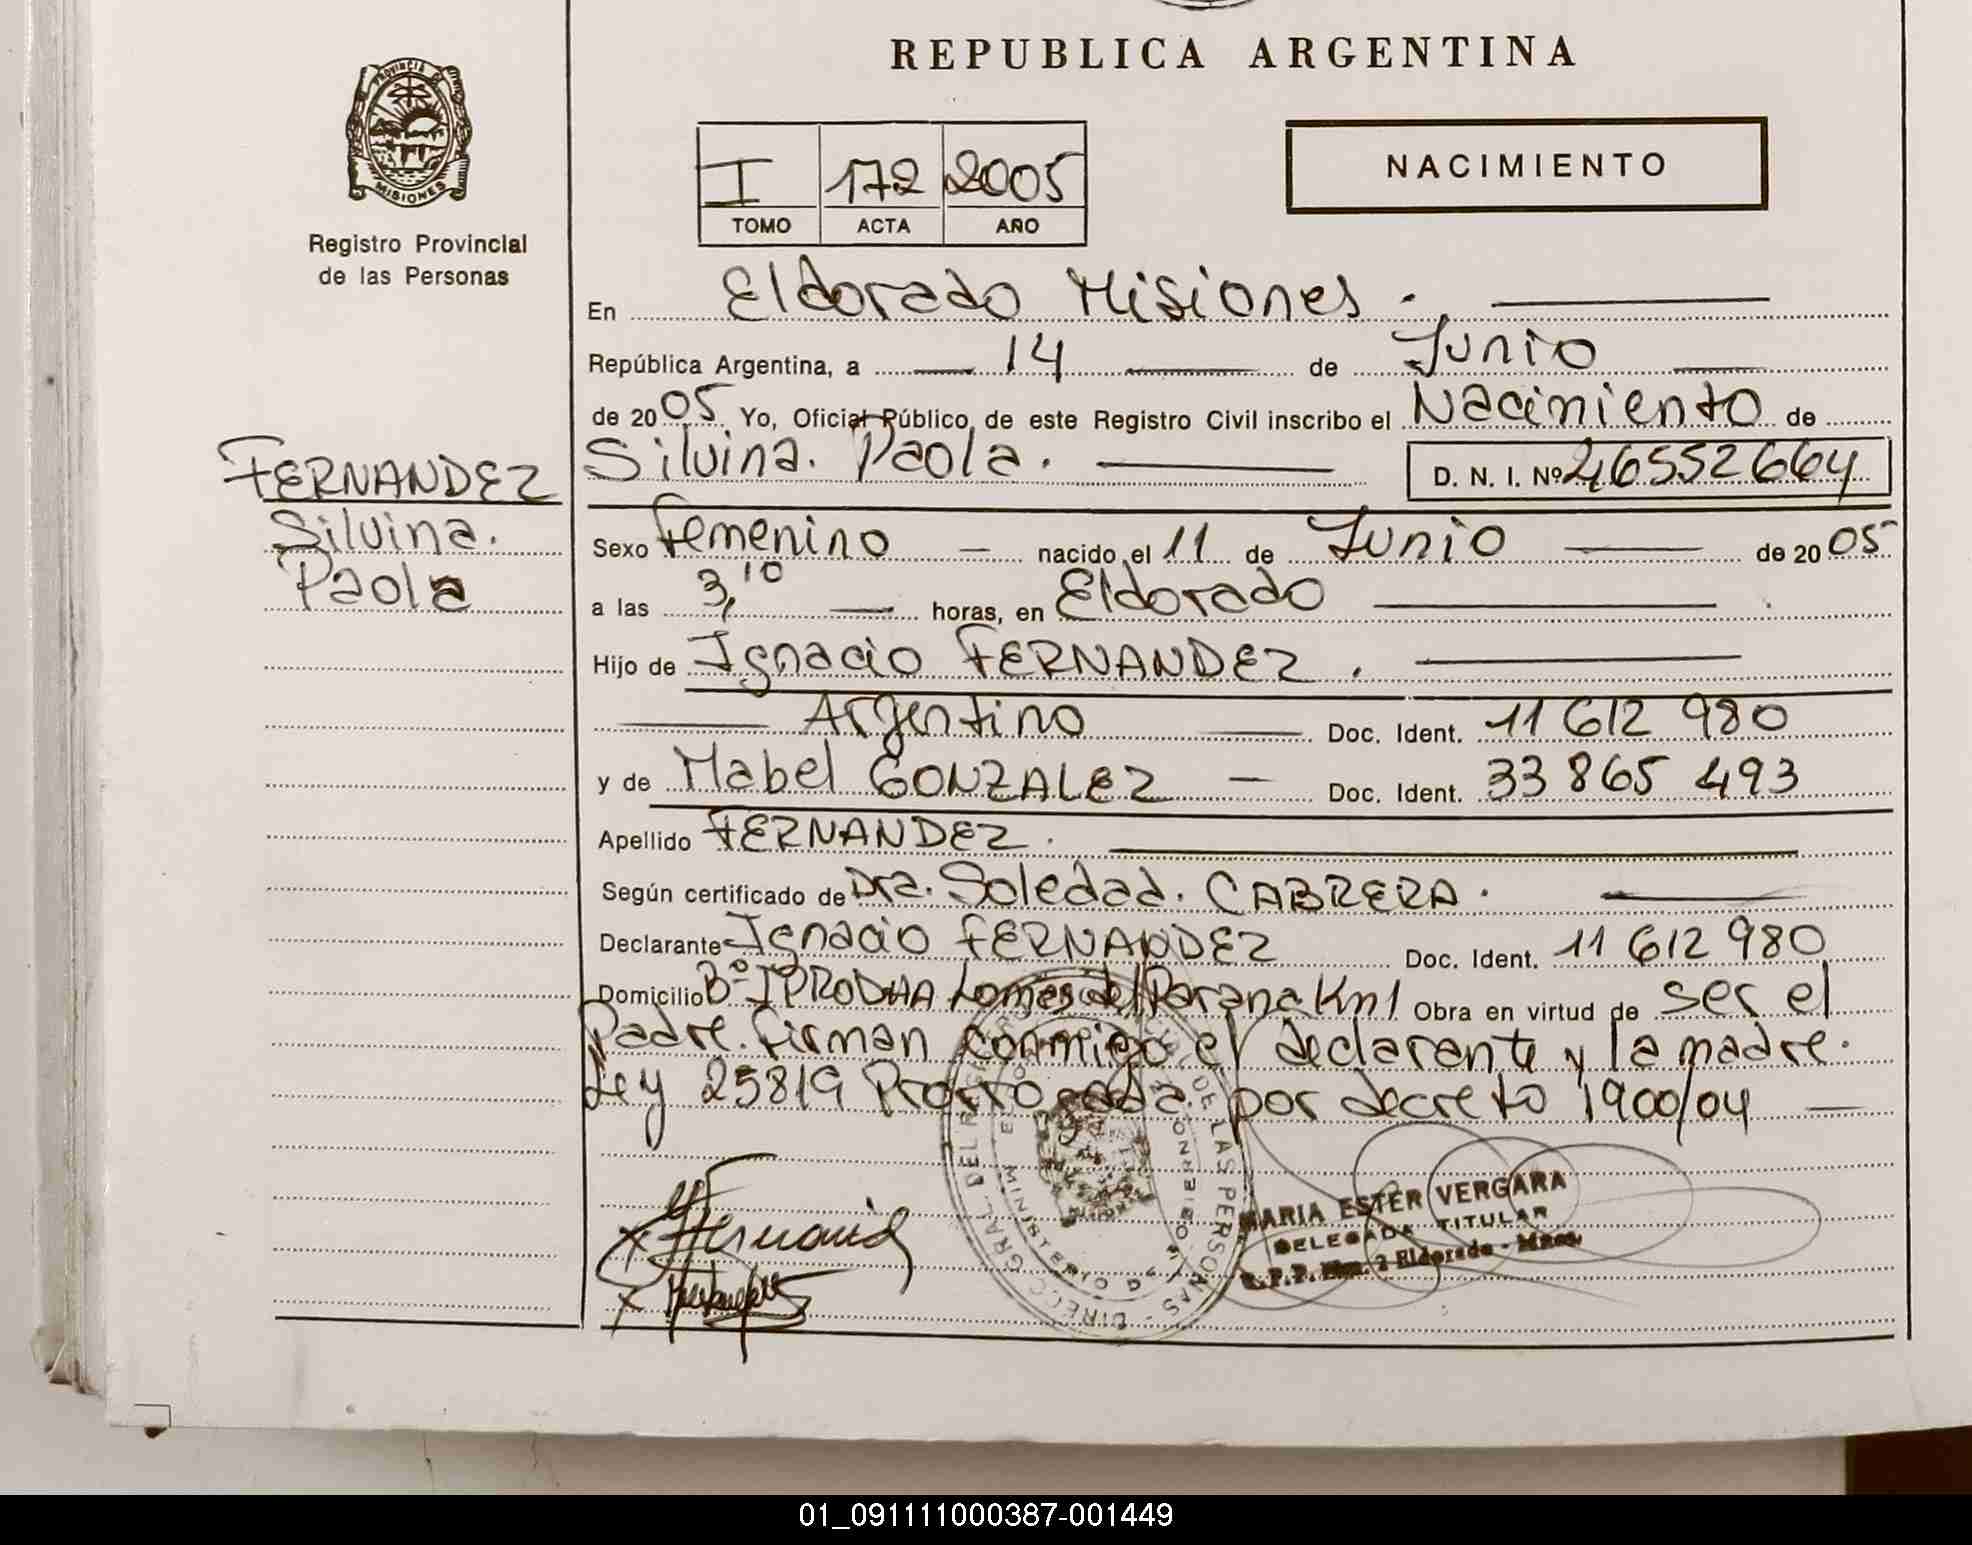 REPUBLICA ARGENTINA
PROVINCIA DE
MISIONES
Registro Provincial
de las Personas
NACIMIENTO
I 172 2005
TOMO ACTA AÑO
En Eldorado Misiones.
República Argentina, a 14 de Junio
de 2005 Yo, Oficial Público de este Registro Civil inscribo el Nacimiento de
Silvina. Paola. D. N. I. Nº 46552664
FERNANDEZ
Silvina.
Paola
Sexo Femenino nacido el 11 de Junio de 2005
a las 3,10 horas, en Eldorado
Hijo de Ignacio FERNANDEZ.
Argentino Doc. Ident. 11 612 980
y de Mabel GONZALEZ Doc. Ident. 33 865 493
Apellido FERNANDEZ.
Según certificado de Dra. Soledad. CABRERA.
Declarante Ignacio FERNANDEZ Doc. Ident. 11 612 980
Domicilio Bº IPRODHA Lomas del Parana Km 1 Obra en virtud de ser el
Padre. Firman conmigo el declarante y la madre.
Ley 25819 Prorrogada por decreto 1900/04
MARIA ESTER VERGARA
DELEGADA TITULAR
2 Eldorado - Mnes.
01_091111000387-001449